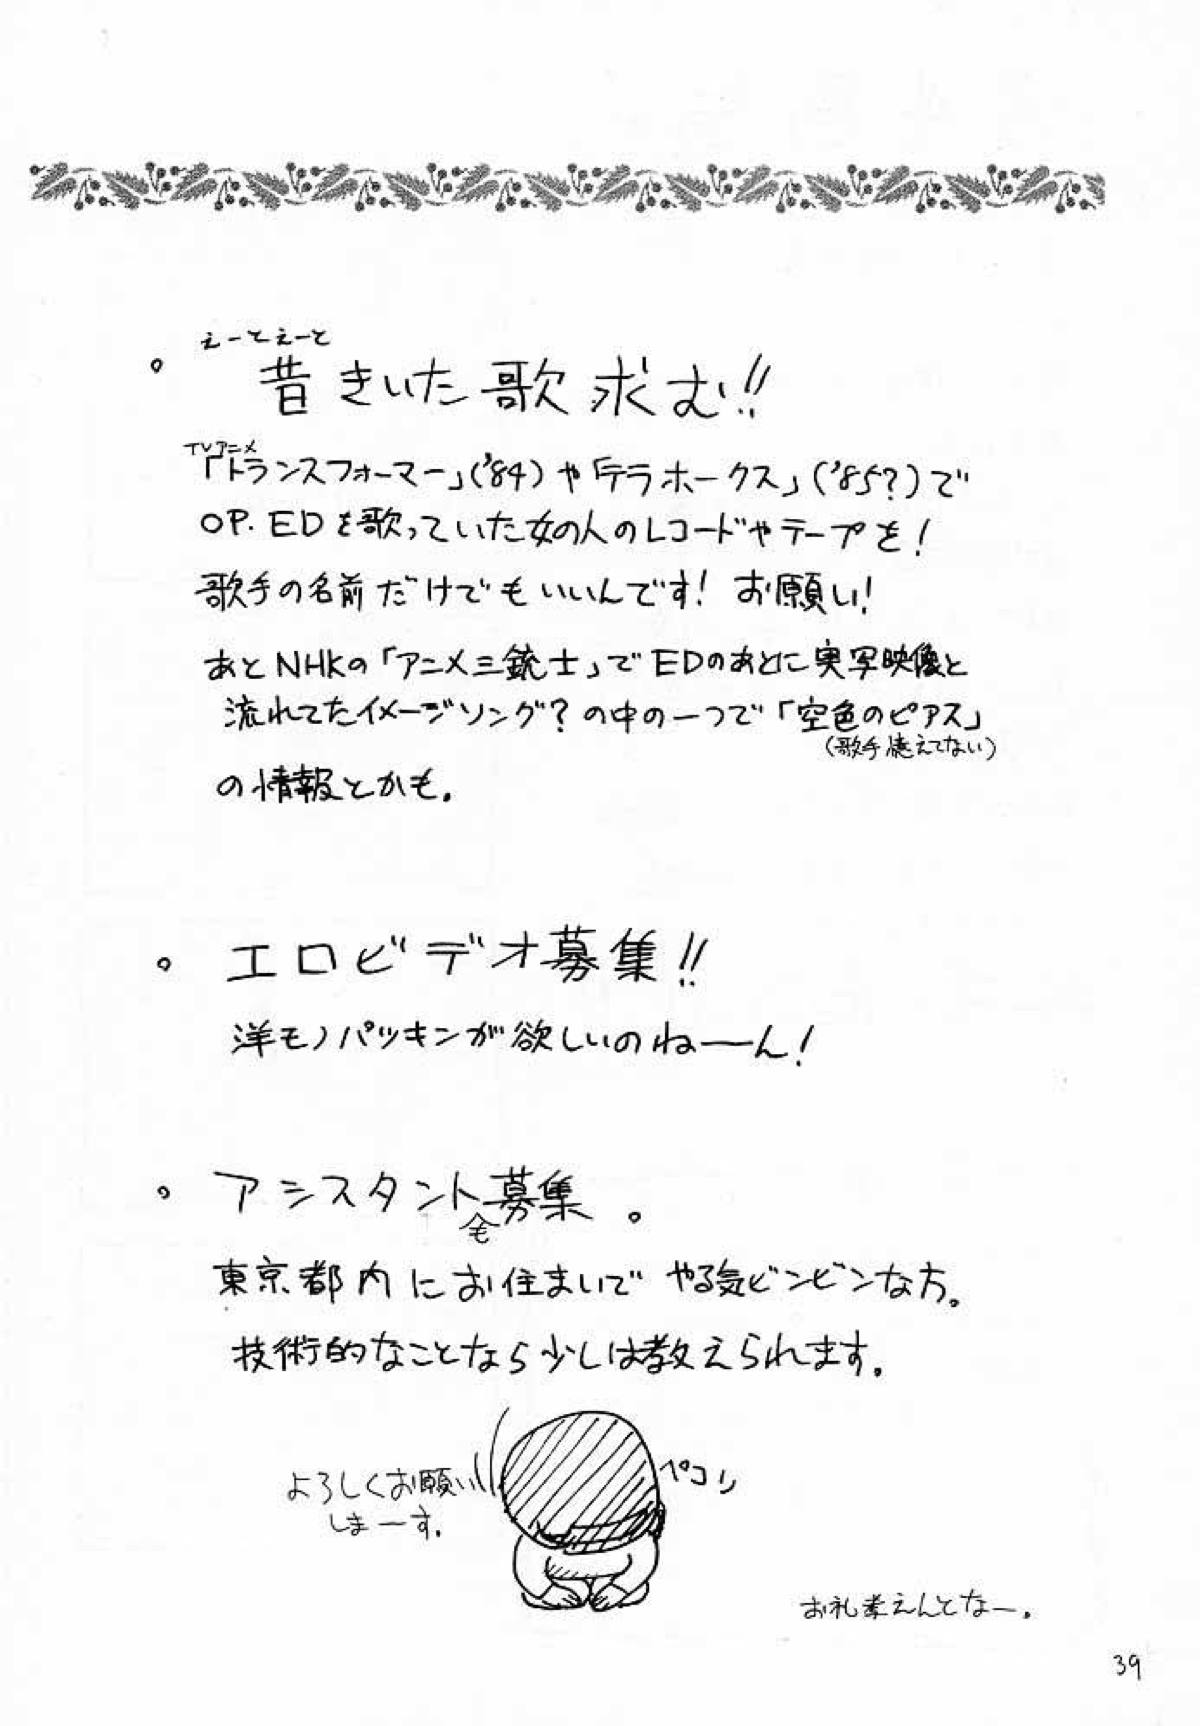 えーとえーと
。昔きいた歌求む!!
TVアニメ
「トランスフォーマー」('84)や「テラホークス」('85?)で
OP.EDを歌っていた女の人のレコードやテープを!
歌手の名前だけでもいいんです! お願い!
あとNHKの「アニメ三銃士」でEDのあとに実写映像と
流れてたイメージソング?の中の一つで「空色のピアス」
(歌手憶えてない)
の情報とかも.
。エロビデオ募集!!
洋モノパツキンが欲しいのねーーん!
。アシスタント募集。
東京都内にお住まいで やる気ビンビンな方。
技術的なことなら少しは教えられます。
よろしくお願い
しまーす.
ペコリ
お礼考えんとなー.
39